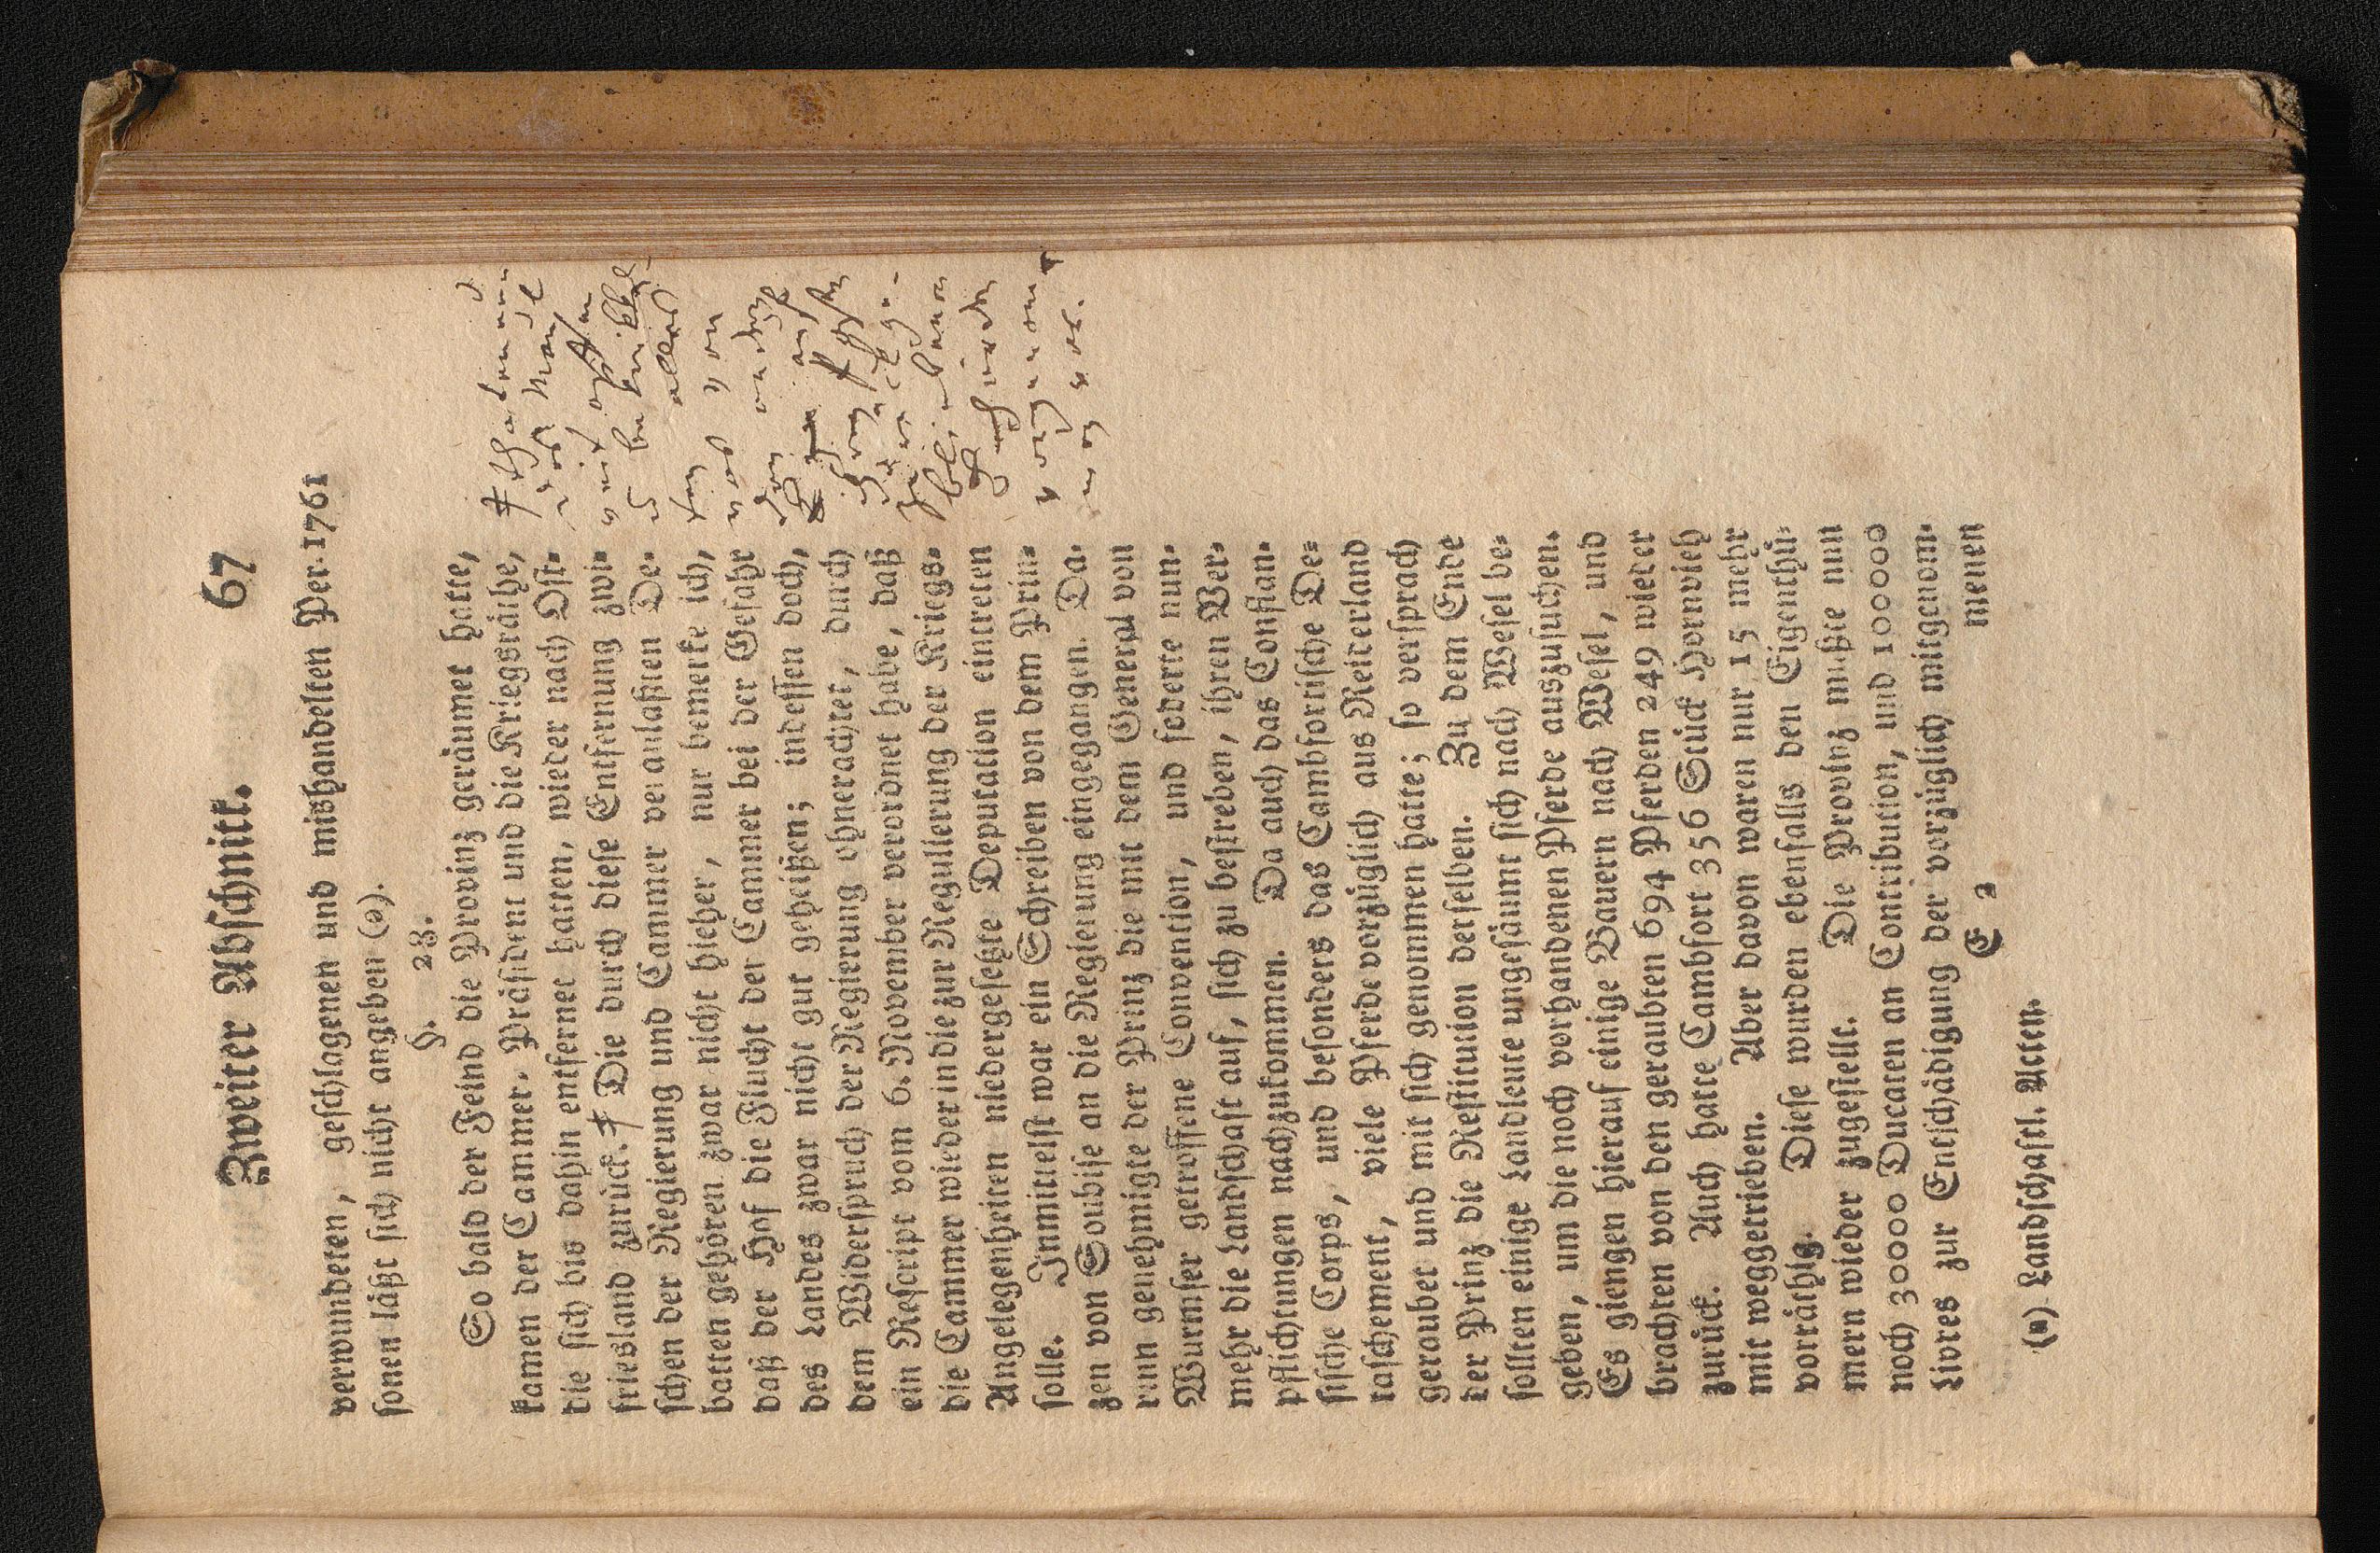 Zweiter Abschnitt. 67
verwundeten, geschlagenen und mishandelten Per- 1761
sonen läßt sich nicht angeben (a).
§. 28.
So bald der Feind die Provinz geräumet hatte,
kamen der Cammer-Präsident und die Kriegsräthe,
die sich bis dahin entfernet hatten, wieder nach Ost-
friesland zurück. ǂ Die durch diese Entfernung zwi-
schen der Regierung und Cammer veranlaßten De-
batten gehören zwar nicht hieher, nur bemerke ich,
daß der Hof die Flucht der Cammer bei der Gefahr
des Landes zwar nicht gut geheißen; indessen doch,
dem Widerspruch der Regierung ohnerachtet, durch
ein Rescript vom 6. November verordnet habe, daß
die Cammer wieder in die zur Regulierung der Kriegs-
Angelegenheiten niedergesetzte Deputation eintreten
solle. Inmittelst war ein Schreiben von dem Prin-
zen von Soubise an die Regierung eingegangen. Da-
rinn genehmigte der Prinz die mit dem General von
Wurmser getroffene Convention, und foderte nun-
mehr die Landschaft auf, sich zu bestreben, ihren Ver-
pflichtungen nachzukommen. Da auch das Conflan-
sische Corps, und besonders das Cambfortische De-
taschement, viele Pferde vorzüglich aus Reiterland
geraubet und mit sich genommen hatte; so versprach
der Prinz die Restitution derselben. Zu dem Ende
sollten einige Landleute ungesäumt sich nach Wesel be-
geben, um die noch vorhandenen Pferde auszusuchen.
Es giengen hierauf einige Bauern nach Wesel, und
brachten von den geraubten 694 Pferden 249 wieder
zurück. Auch hatte Cambfort 356 Stück Hornvieh
mit weggetrieben. Aber davon waren nur 15 mehr
vorräthig. Diese wurden ebenfalls den Eigenthü-
mern wieder zugestellt. Die Provinz mußte nun
noch 30000 Ducaten an Contribution, und 100000
Livres zur Entschädigung der vorzüglich mitgenom-
E 2 menen
(a) Landschaftl. Acten.